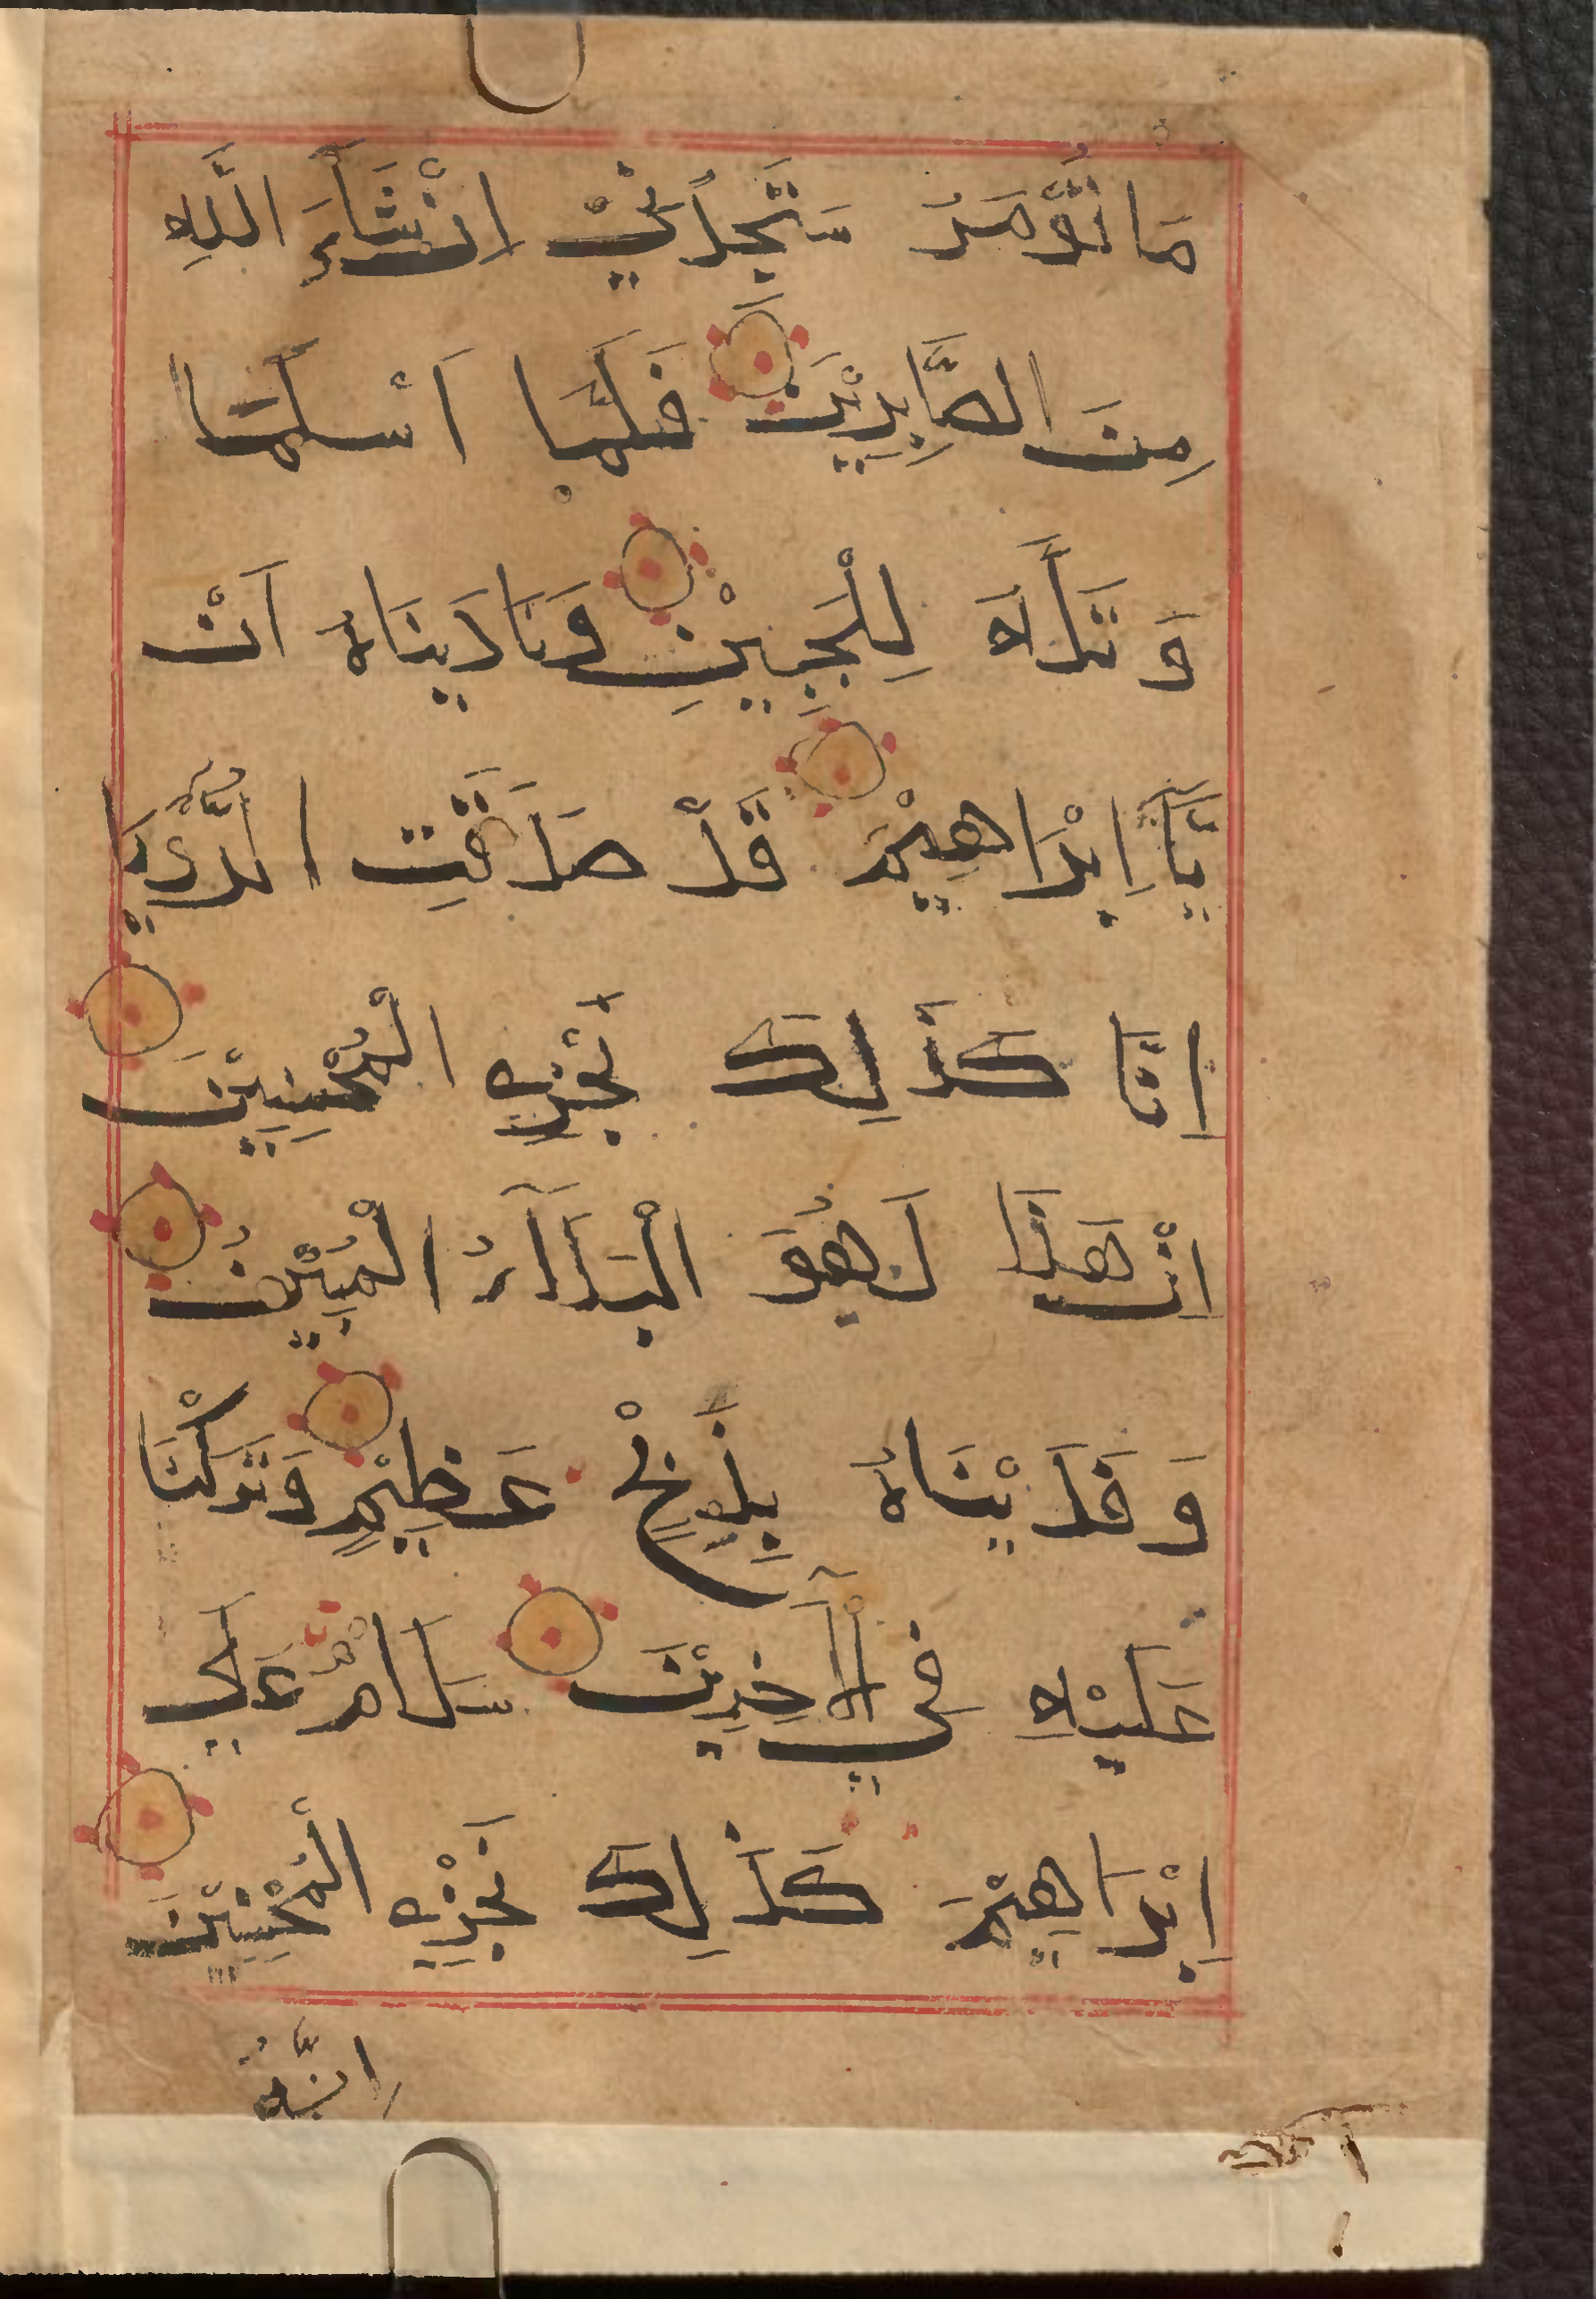 مَا تُؤْمَرُ سَتَجِدُنِيْ اِنْ شَآءَ اللّٰهِ
مِنَ الصَّابِرِيْنَ فَلَمَّا اَسْلَمَا
وَ تَلَّهُ لِلْجَبِيْنِ وَنَادَيْنَاهُ اَنْ
يَّآ اِبْرَاهِيْمُ قَدْ صَدَّقْتَ الرُّءْيَا
اِنَّا كَذَالِكَ نَجْزِي الْمُحْسِنِيْنَ
اِنَّ هَذَا لَهُوَ الْبَلَآءُ الْمُبِيْنُ
وَ فَدَيْنَاهُ بِذِبْحٍ عَظِيْمٍ وَتَرَكْنَا
عَلَيْهِ فِي الْآخِرِيْنَ سَلَامٌ عَلَي
اِبْرَاهِيْمَ كَذَالِكَ نَجْزِي الْمُحْسِنِيْنَ
اِنَّهُ